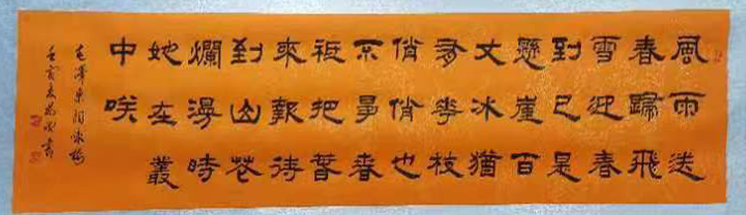 風雨送
春歸飛
雪迎春
到已是
懸崖百
丈冰猶
有華枝
俏俏也
不爭春
祗把春
來報待
到山花
爛漫時
她在叢
中咲
毛澤東詞詠梅
壬寅書